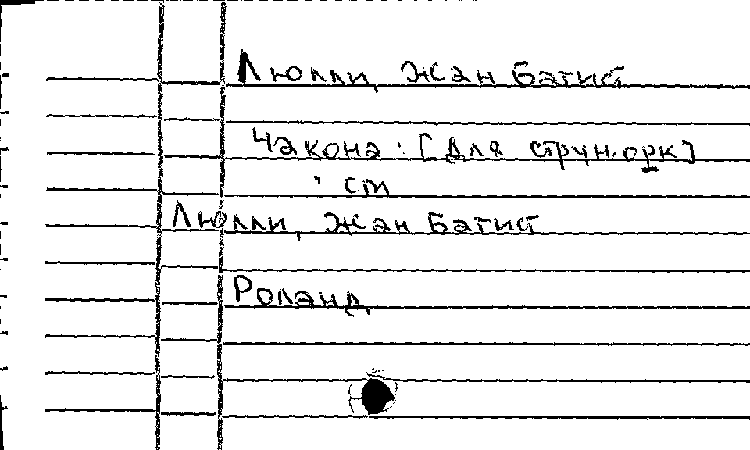 Люлли, Жан Батист
Чакона : [для струн. орк]
: см
Люлли, Жан Батист
Роланд.